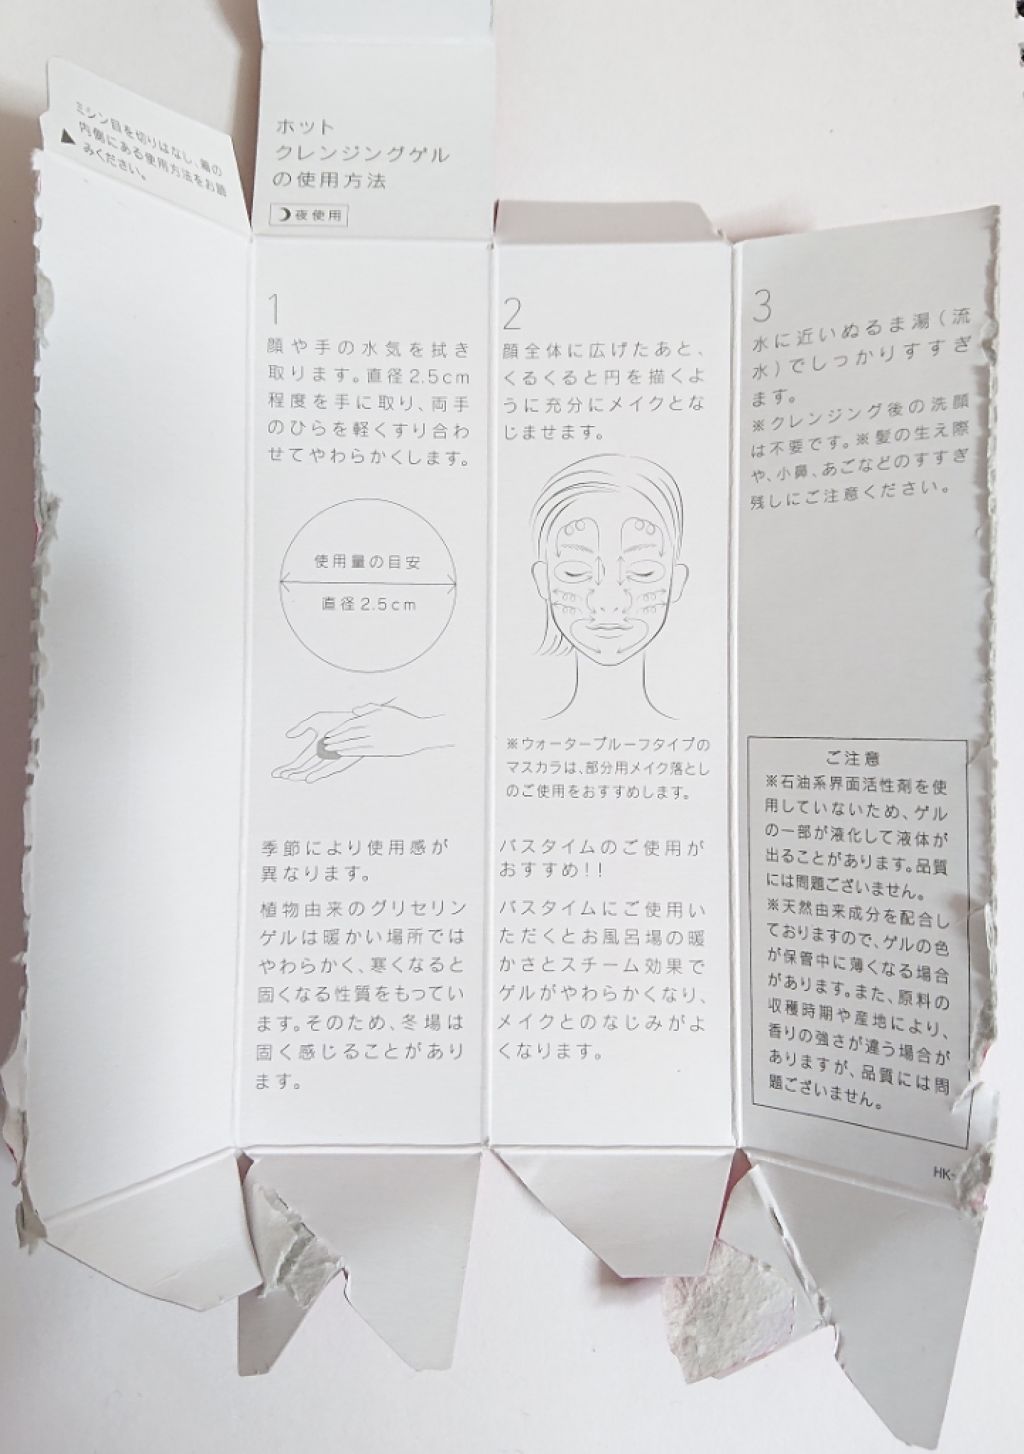 ミシン目を切りはなし、箱の
内側にある使用方法をお読
みください。
ホット
クレンジングゲル
の使用方法
夜使用
1
顔や手の水気を拭き
取ります。直径2.5cm
程度を手に取り、両手
のひらを軽くすり合わ
せてやわらかくします。
使用量の目安
直径2.5cm
季節により使用感が
異なります。
植物由来のグリセリン
ゲルは暖かい場所では
やわらかく、寒くなると
固くなる性質をもってい
ます。そのため、冬場は
固く感じることがあり
ます。
2
顔全体に広げたあと、
くるくると円を描くよ
うに充分にメイクとな
じませます。
※ウォータープルーフタイプの
マスカラは、部分用メイク落とし
のご使用をおすすめします。
バスタイムのご使用が
おすすめ!!
バスタイムにご使用い
ただくとお風呂場の暖
かさとスチーム効果で
ゲルがやわらかくなり、
メイクとのなじみがよ
くなります。
3
水に近いぬるま湯(流
水)でしっかりすすぎ
ます。
※クレンジング後の洗顔
は不要です。※髪の生え際
や、小鼻、あごなどのすすぎ
残しにご注意ください。
ご注意
※石油系界面活性剤を使
用していないため、ゲル
の一部が液化して液体が
出ることがあります。品質
には問題ございません。
※天然由来成分を配合し
ておりますので、ゲルの色
が保管中に薄くなる場合
があります。また、原料の
収穫時期や産地により、
香りの強さが違う場合が
ありますが、品質には問
題ございません。
HK-